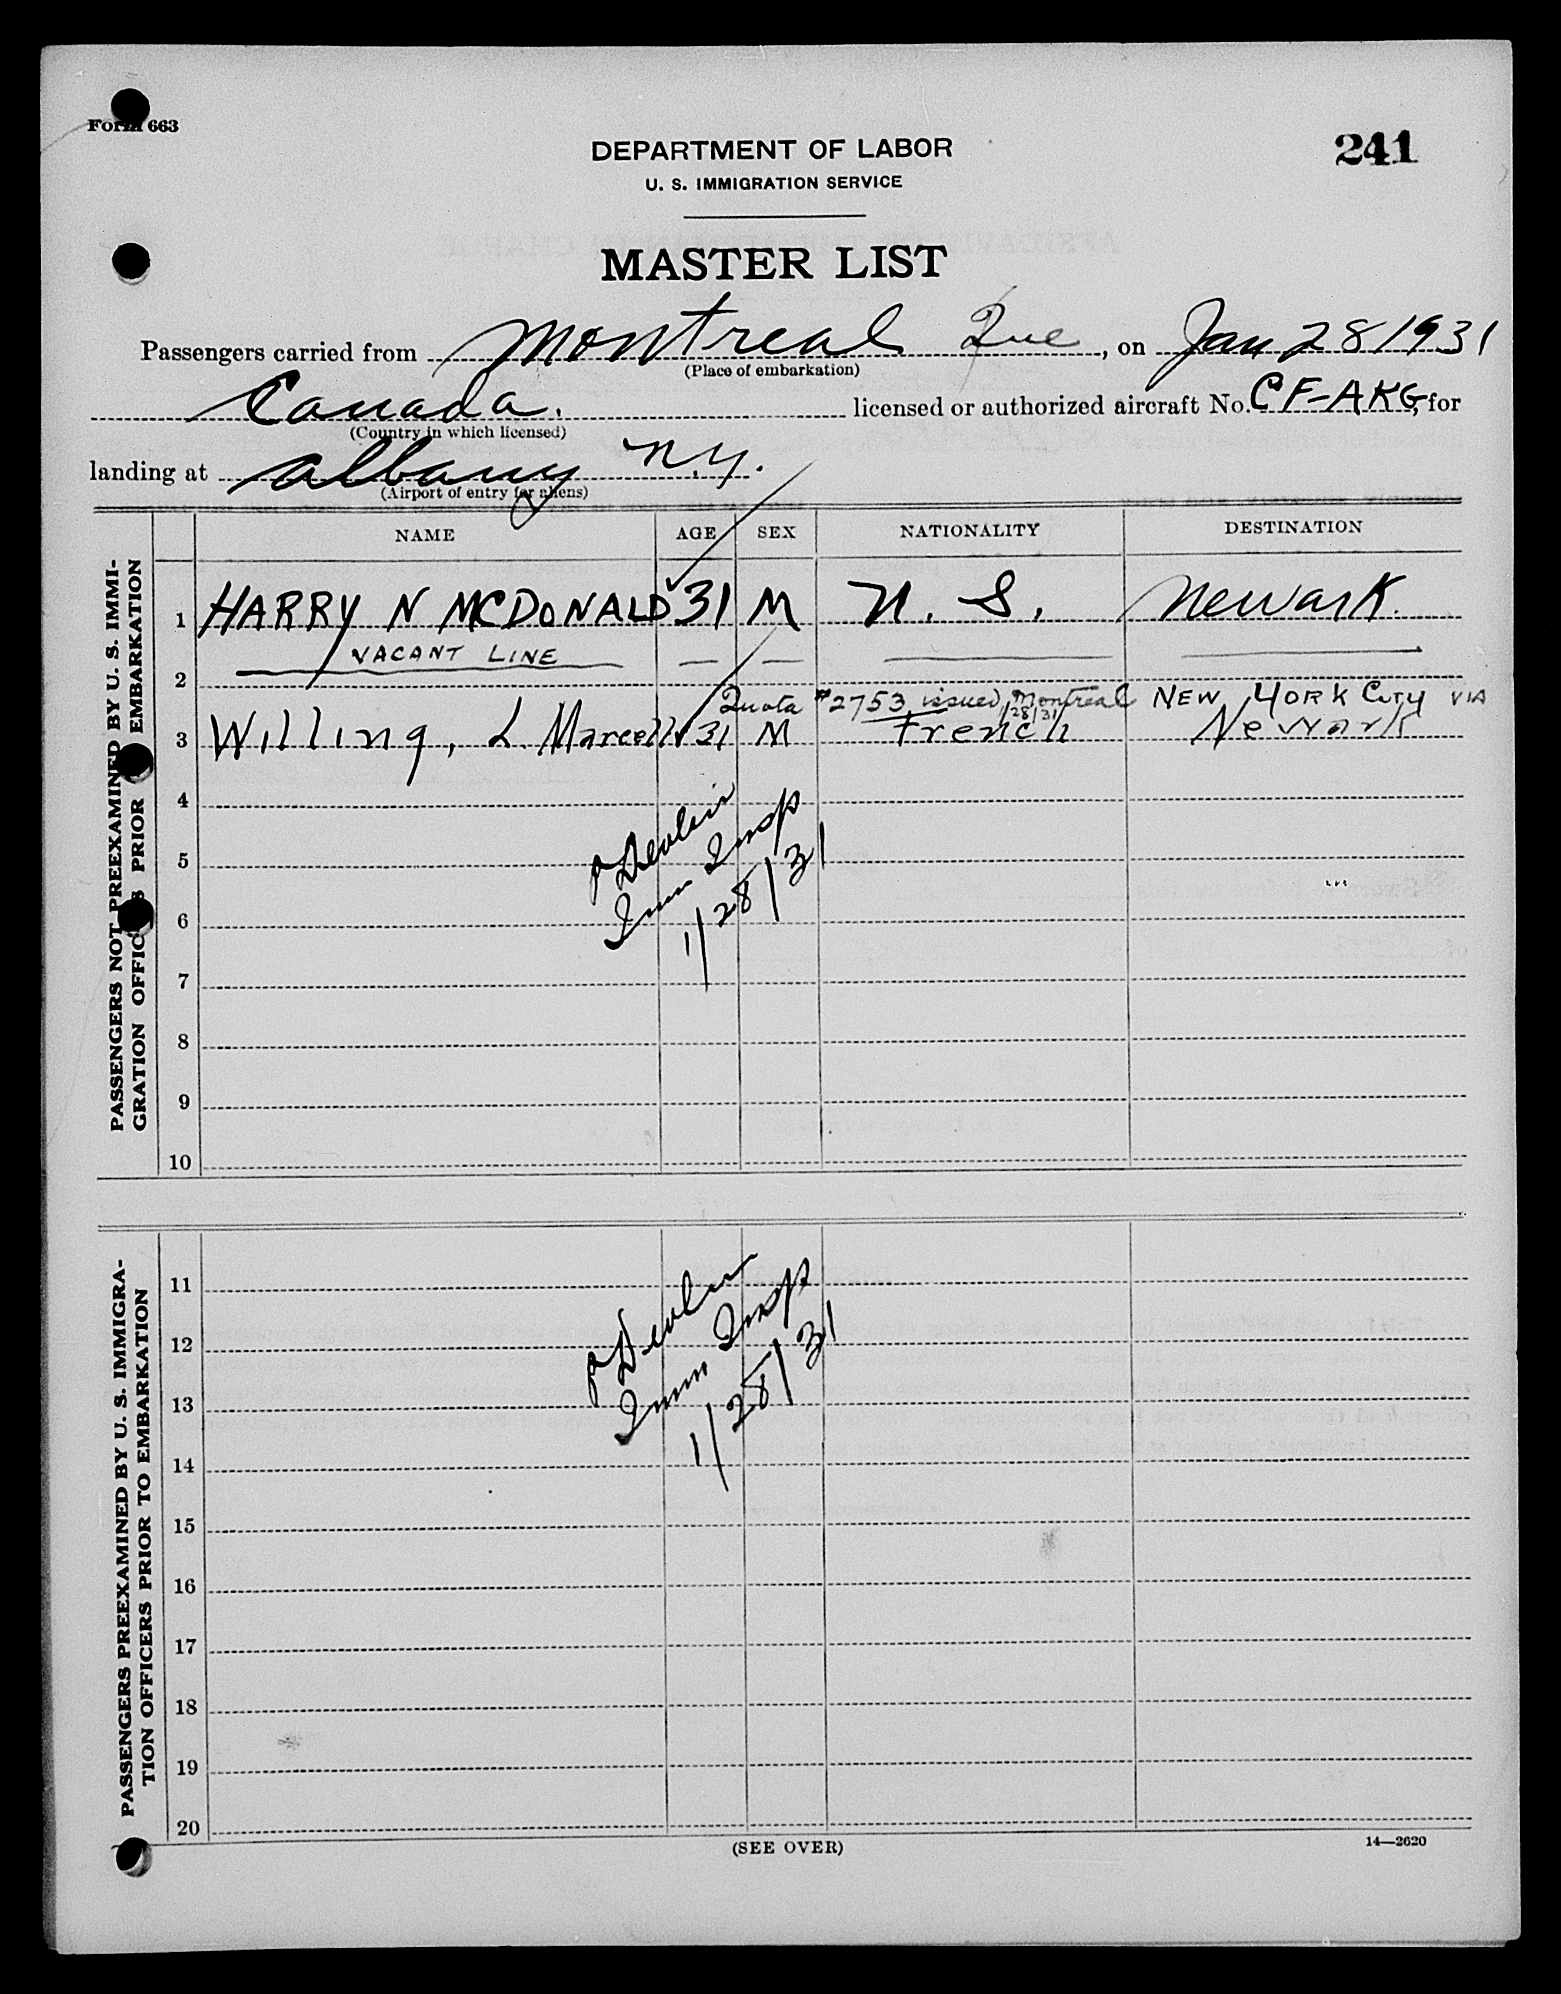 Form 663
241
DEPARTMENT OF LABOR
U. S. IMMIGRATION SERVICE
MASTER LIST
Passengers carried from Montreal Que, on Jan 28 1931
(Place of embarkation)
Canada. licensed or authorized aircraft No. CF-AKG, for
(Country in which licensed)
landing at Albany N.Y.
(Airport of entry for aliens)
NAME AGE SEX NATIONALITY DESTINATION
PASSENGERS NOT PREEXAMINED BY U. S. IMMI-
GRATION OFFICERS PRIOR EMBARKATION
1 HARRY N MCDONALD 31 M U. S. Newark.
VACANT LINE
2
Quota #2753 issued Montreal NEW YORK CITY VIA
1/28/31
3 Willing, L. Marcell 31 M French Newark
4
5
6
7
8
9
10
Devlin
Imm Insp
1/28/31
PASSENGERS PREEXAMINED BY U. S. IMMIGRA-
TION OFFICERS PRIOR TO EMBARKATION
11
12
13
14
15
16
17
18
19
20
Devlin
Imm Insp
1/28/31
(SEE OVER)
14—2620